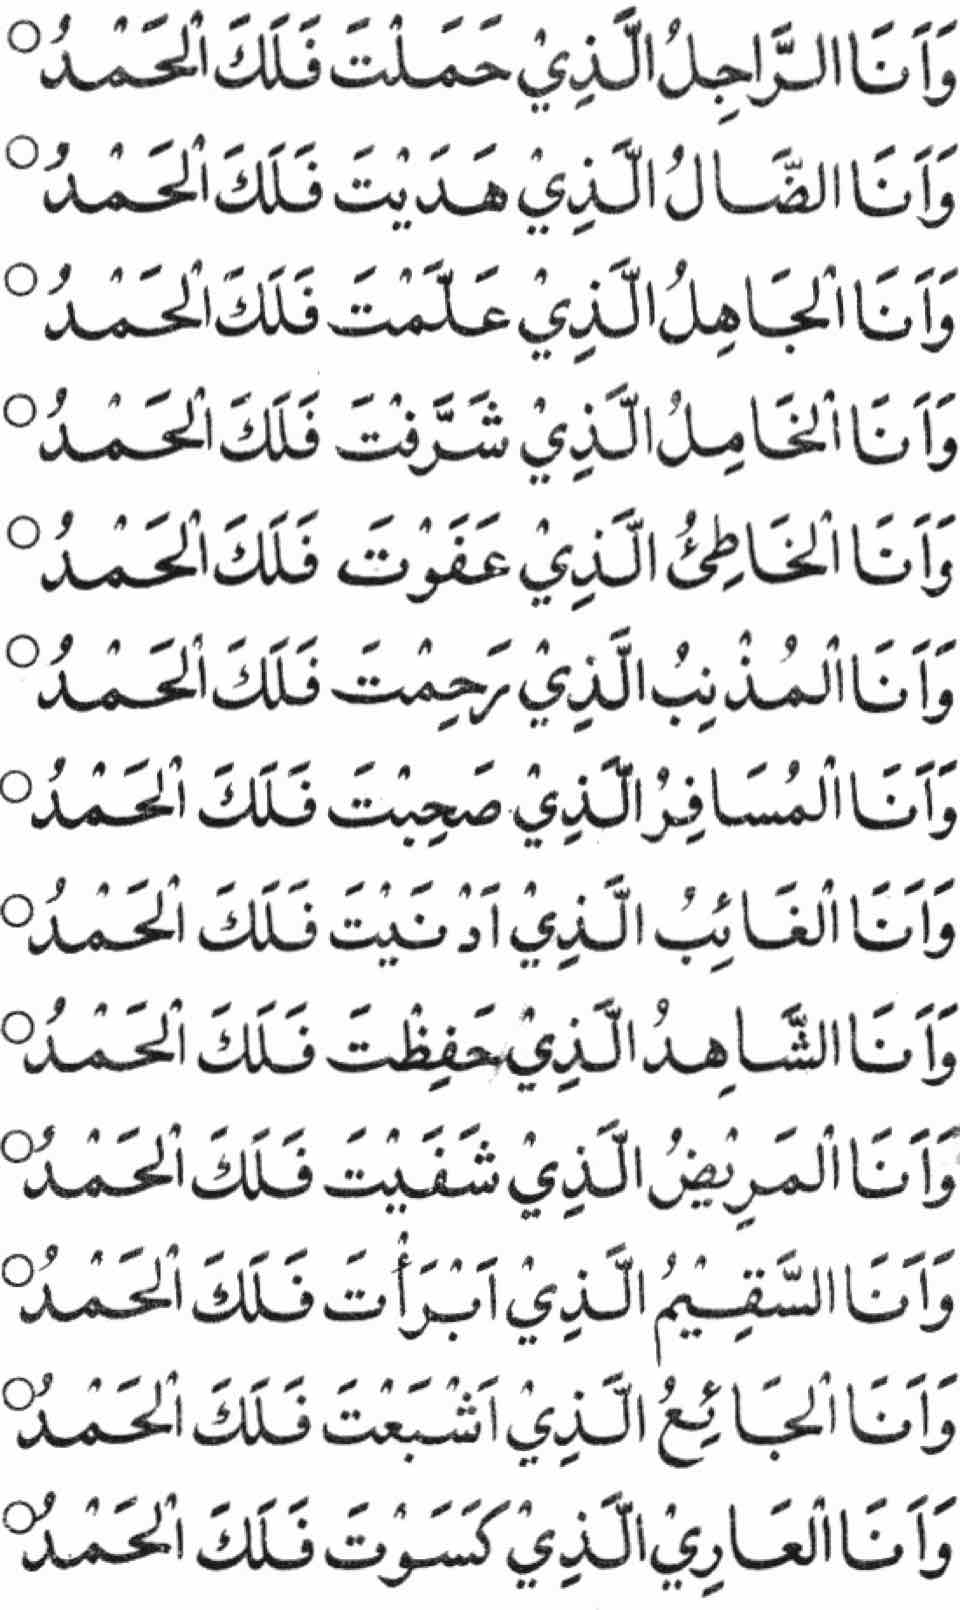 وَاَنَا الرَّاجِلُ الَّذِيْ حَمَلْتَ فَلَكَ الْحَمْدُ ○
وَاَنَا الضَّالُ الَّذِيْ هَدَيْتَ فَلَكَ الْحَمْدُ ○
وَاَنَا الْجَاهِلُ الَّذِيْ عَلَّمْتَ فَلَكَ الْحَمْدُ ○
وَاَنَا الْخَامِلُ الَّذِيْ شَرَّفْتَ فَلَكَ الْحَمْدُ ○
وَاَنَا الْخَاطِئُ الَّذِيْ عَفَوْتَ فَلَكَ الْحَمْدُ ○
وَاَنَا الْمُذْنِبُ الَّذِيْ رَحِمْتَ فَلَكَ الْحَمْدُ ○
وَاَنَا الْمُسَافِرُ الَّذِيْ صَحِبْتَ فَلَكَ الْحَمْدُ ○
وَاَنَا الْغَائِبُ الَّذِيْ اَدْنَيْتَ فَلَكَ الْحَمْدُ ○
وَاَنَا الشَّاهِدُ الَّذِيْ حَفِظْتَ فَلَكَ الْحَمْدُ ○
وَاَنَا الْمَرِيْضُ الَّذِيْ شَفَيْتَ فَلَكَ الْحَمْدُ ○
وَاَنَا السَّقِيْمُ الَّذِيْ اَبْرَأْتَ فَلَكَ الْحَمْدُ ○
وَاَنَا الْجَائِعُ الَّذِيْ اَشْبَعْتَ فَلَكَ الْحَمْدُ ○
وَاَنَا الْعَارِيْ الَّذِيْ كَسَوْتَ فَلَكَ الْحَمْدُ ○